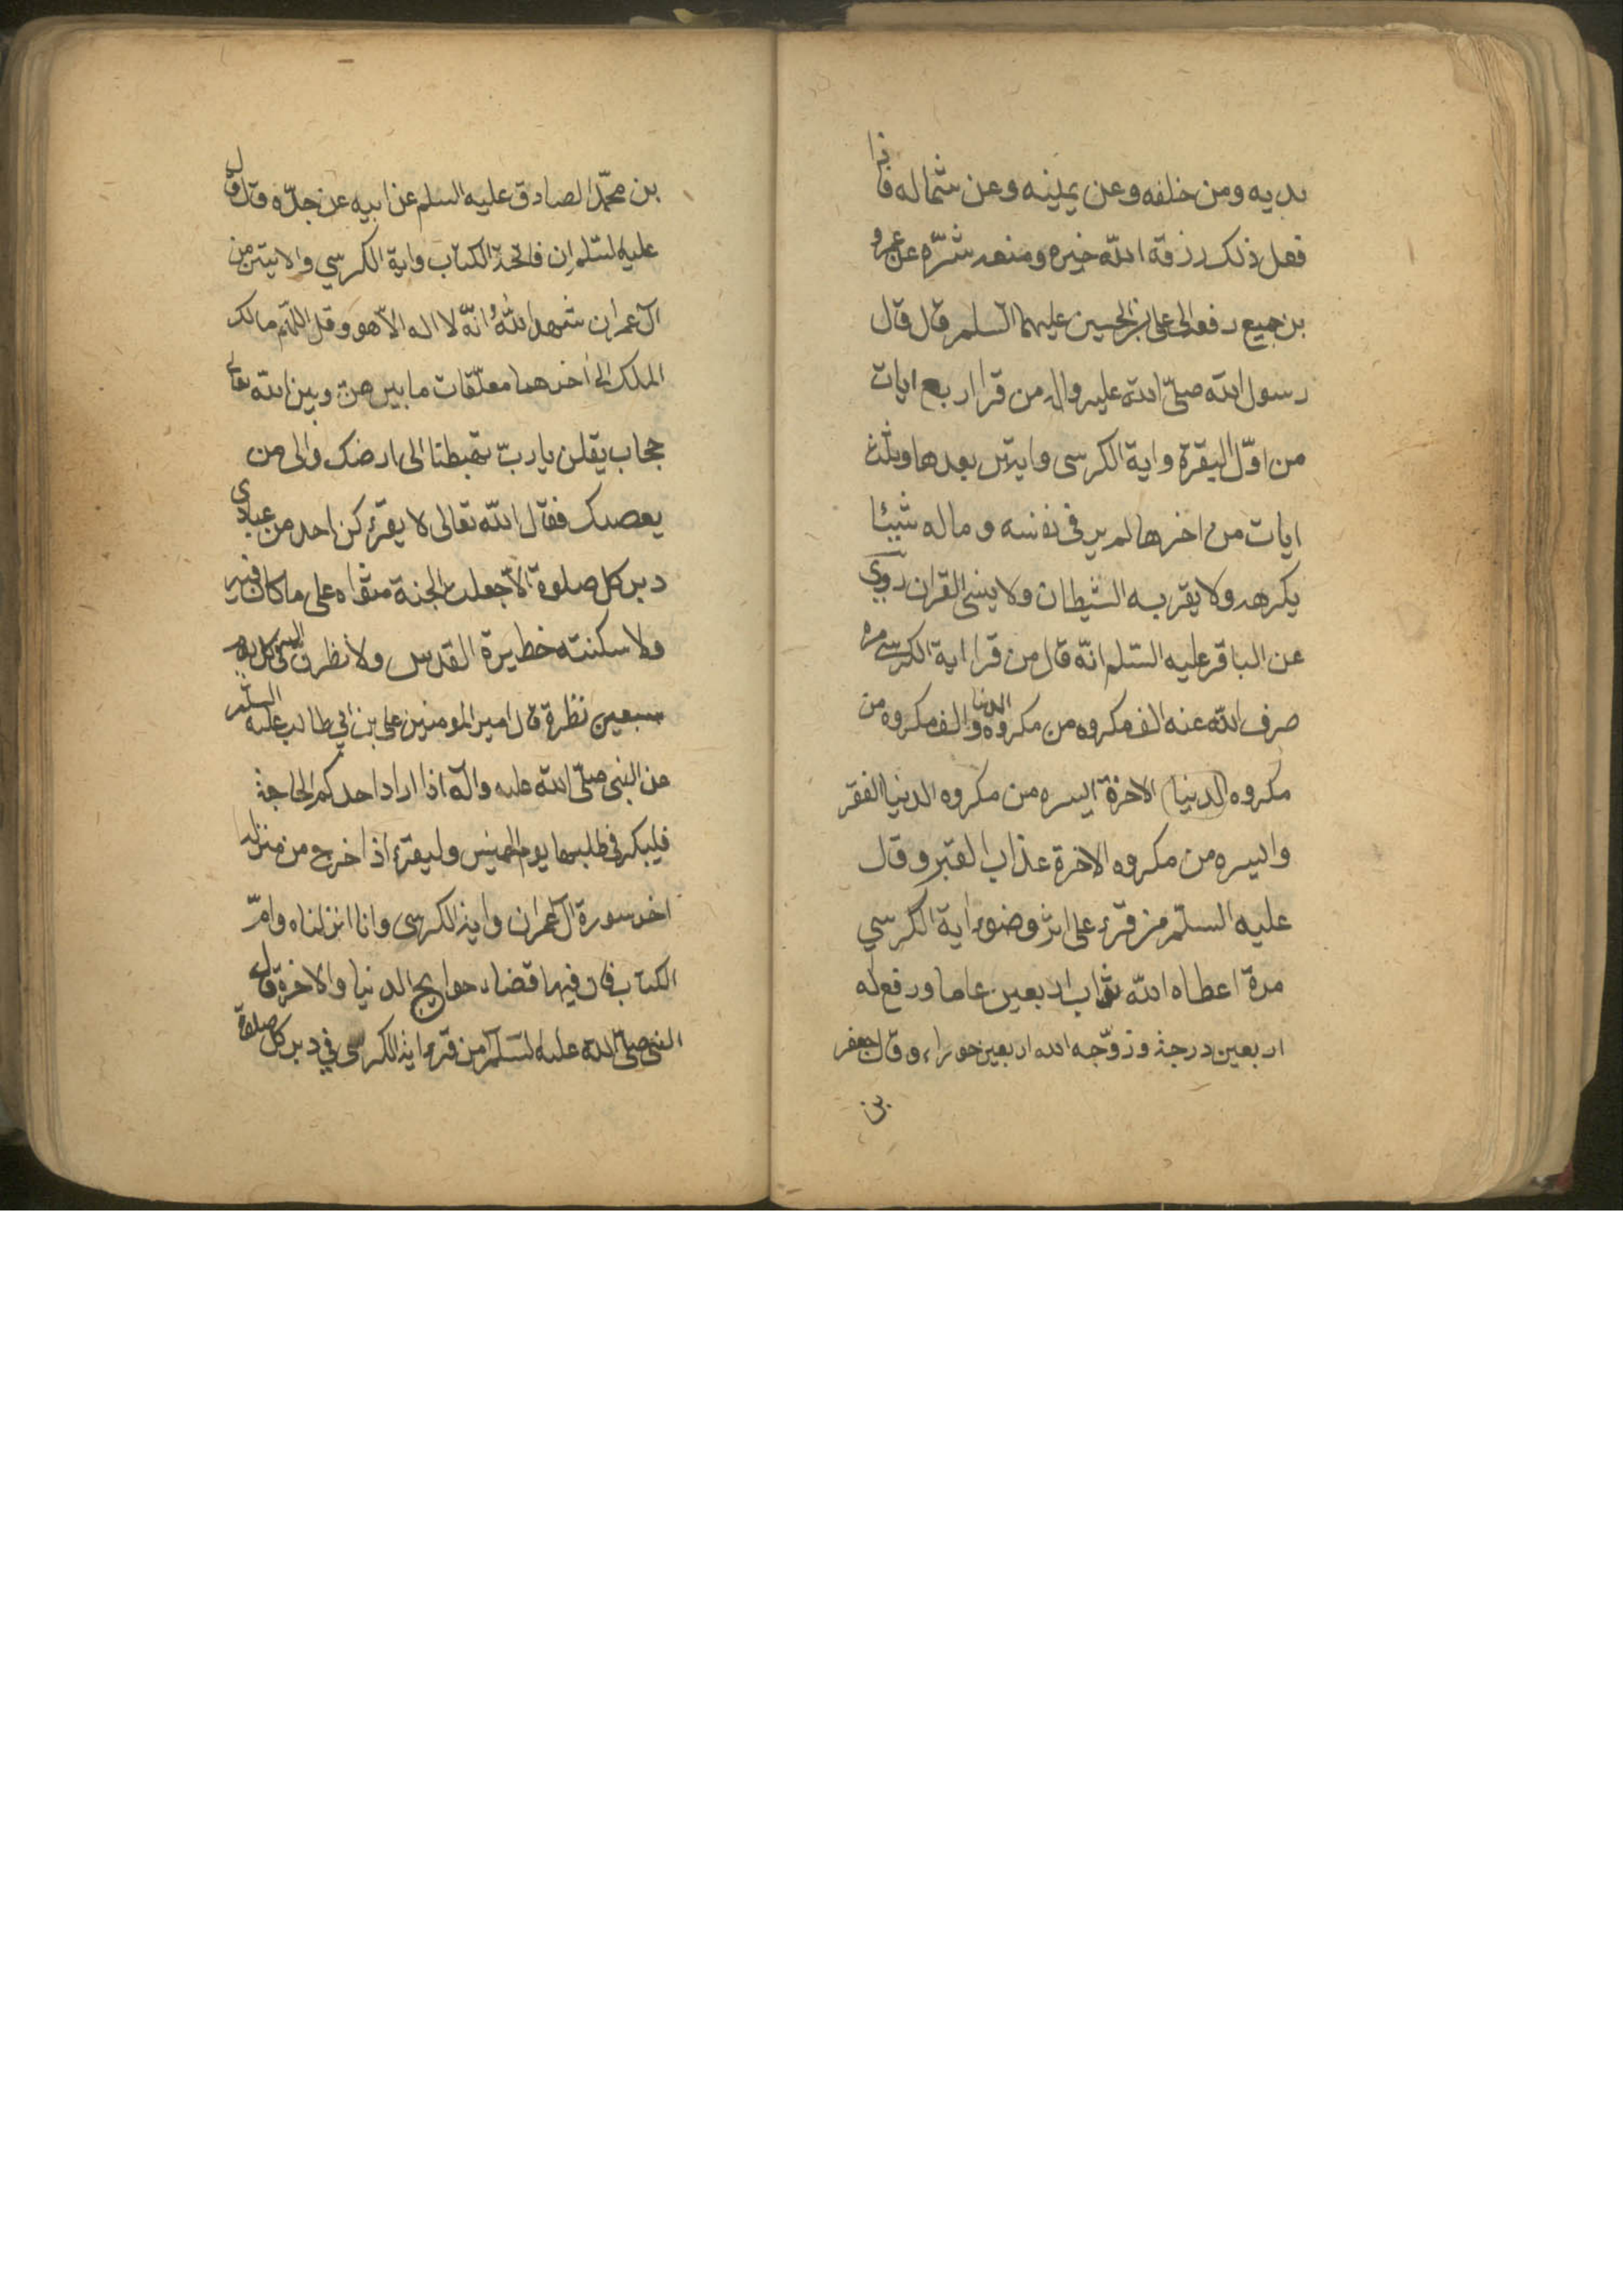 يديه ومن خلفه وعن يمينه وعن شماله فاذا
فعل ذلك رزقه الله خيره ومنعه شرّه عن عمرو
بن جميع رفعه الى على بن الحسين عليهما السلم قال قال
رسول الله صلّى الله عليه واله من قرا اربع ايات
من اوّل البقرة واية الكرسى وايتين بعدها وثلث
ايات من اخرها لم ير فى نفسه و ماله شيئا
يكرهه ولا يقربه الشيطان ولا ينسى القران روي
عن الباقر عليه السّلم انّه قال من قرا اية الكرسى مره
صرف الله عنه الف مكروه من مكروه الدنيا والف مكروه من
مكروه (الدنيا) الاخرة ايسره من مكروه الدنيا الفقر
وايسره من مكروه الاخرة عذاب القبر وقال
عليه السلم من قرء على اثر وضوء اية الكرسي
مرة اعطاه الله ثواب اربعين عاما ورفع له
اربعين درجة وزوّجه الله اربعين حوراء وقال جعفر
بن
بن محمّد الصادق عليه السلم عن ابيه عن جدّه قال قال
عليه السّلم ان فاتحة الكتاب واية الكرسي والايتين من
آل عمران شهد اللّهُ انّه لا اله الّا هو وقل اللّهم مالك
الملك الى اخرهما معلّقات ما بين هن وبين الله تعالى
حجاب يقلن يا ربّ تهبطنا الى ارضك والى من
يعصيك فقال اللّه تعالى لا يقرء كن احد من عبادي
دبر كل صلوة الّا جعلت الجنة مثواه على ما كان فيه
ولاسكنته خطيرة القدس ولانظرنّ اليه فى كل يوم
سبعين نظرة قال امير المومنين على بن ابي طالب عليه السلم
عن النبى صلّى الله عليه وآله اذا اراد احدكم الحاجة
فليبكر فى طلبها يوم الخميس وليقرء اذا خرج من منزله
اخر سورة آل عمران واية الكرسى وانا انزلناه وامّ
الكتب فان فيها قضاء حوايج الدنيا والاخرة قال
النبى صلّى اللّه عليه السّلم من قرء اية الكرسى في دبر كل صلوة